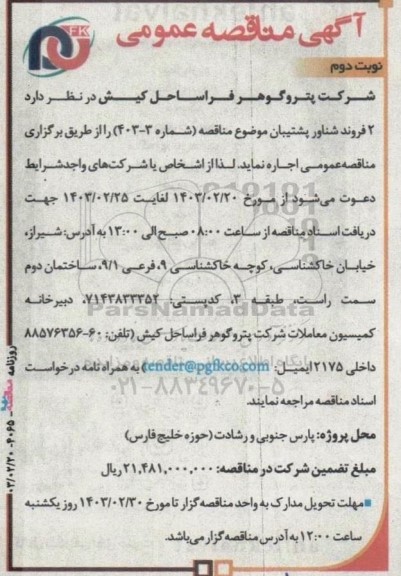 آگهی مناقصه عمومی
FK
نوبت دوم
شرکت پتروگوهر فراساحل کیش در نظر دارد
۲ فروند شناور پشتیبان موضوع مناقصه (شماره ۳-۴۰۳) را از طریق برگزاری
مناقصه عمومی اجاره نماید. لذا از اشخاص یا شرکت‌های واجد شرایط
دعوت می‌شود از مورخ ۱۴۰۳/۰۲/۲۰ لغایت ۱۴۰۳/۰۲/۲۵ جهت
دریافت اسناد مناقصه از ساعت ۰۸:۰۰ صبح الی ۱۳:۰۰ به آدرس: شیراز،
خیابان خاکشناسی، کوچه خاکشناسی ۹، فرعی ۹/۱، ساختمان دوم
سمت راست، طبقه ۳، کدپستی: ۷۱۴۳۸۳۳۳۵۲، دبیرخانه
ParsNamadData
کمیسیون معاملات شرکت پتروگوهر فراساحل کیش (تلفن: ۶۰-۸۸۵۷۶۳۵۶
داخلی ۲۱۷۵ ایمیل: tender@pgfkco.com) به همراه نامه درخواست
اسناد مناقصه مراجعه نمایند.
۰۲۱-۸۸۳۴۹۶۷۰-۵
محل پروژه: پارس جنوبی و رشادت (حوزه خلیج فارس)
مبلغ تضمین شرکت در مناقصه: ۲۱,۴۸۱,۰۰۰,۰۰۰ ریال
مهلت تحویل مدارک به واحد مناقصه گزار تا مورخ ۱۴۰۳/۰۲/۳۰ روز یکشنبه
ساعت ۱۲:۰۰ به آدرس مناقصه گزار می‌باشد.
روزنامه مناقصه - ۴۰۶۵ - ۰۳/۰۲/۲۰